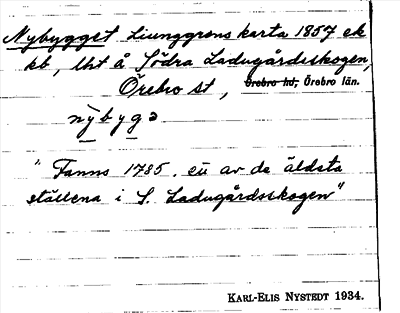 Nybygget Liunggrens karta 1857 ek
kb, lht å Södra Ladugårdsskogen,
Örebro st, Örebro hd, Örebro län.
nybygə
"Fanns 1785. en av de äldsta
ställena i S. Ladugårdsskogen"
KARL-ELIS NYSTEDT 1934.